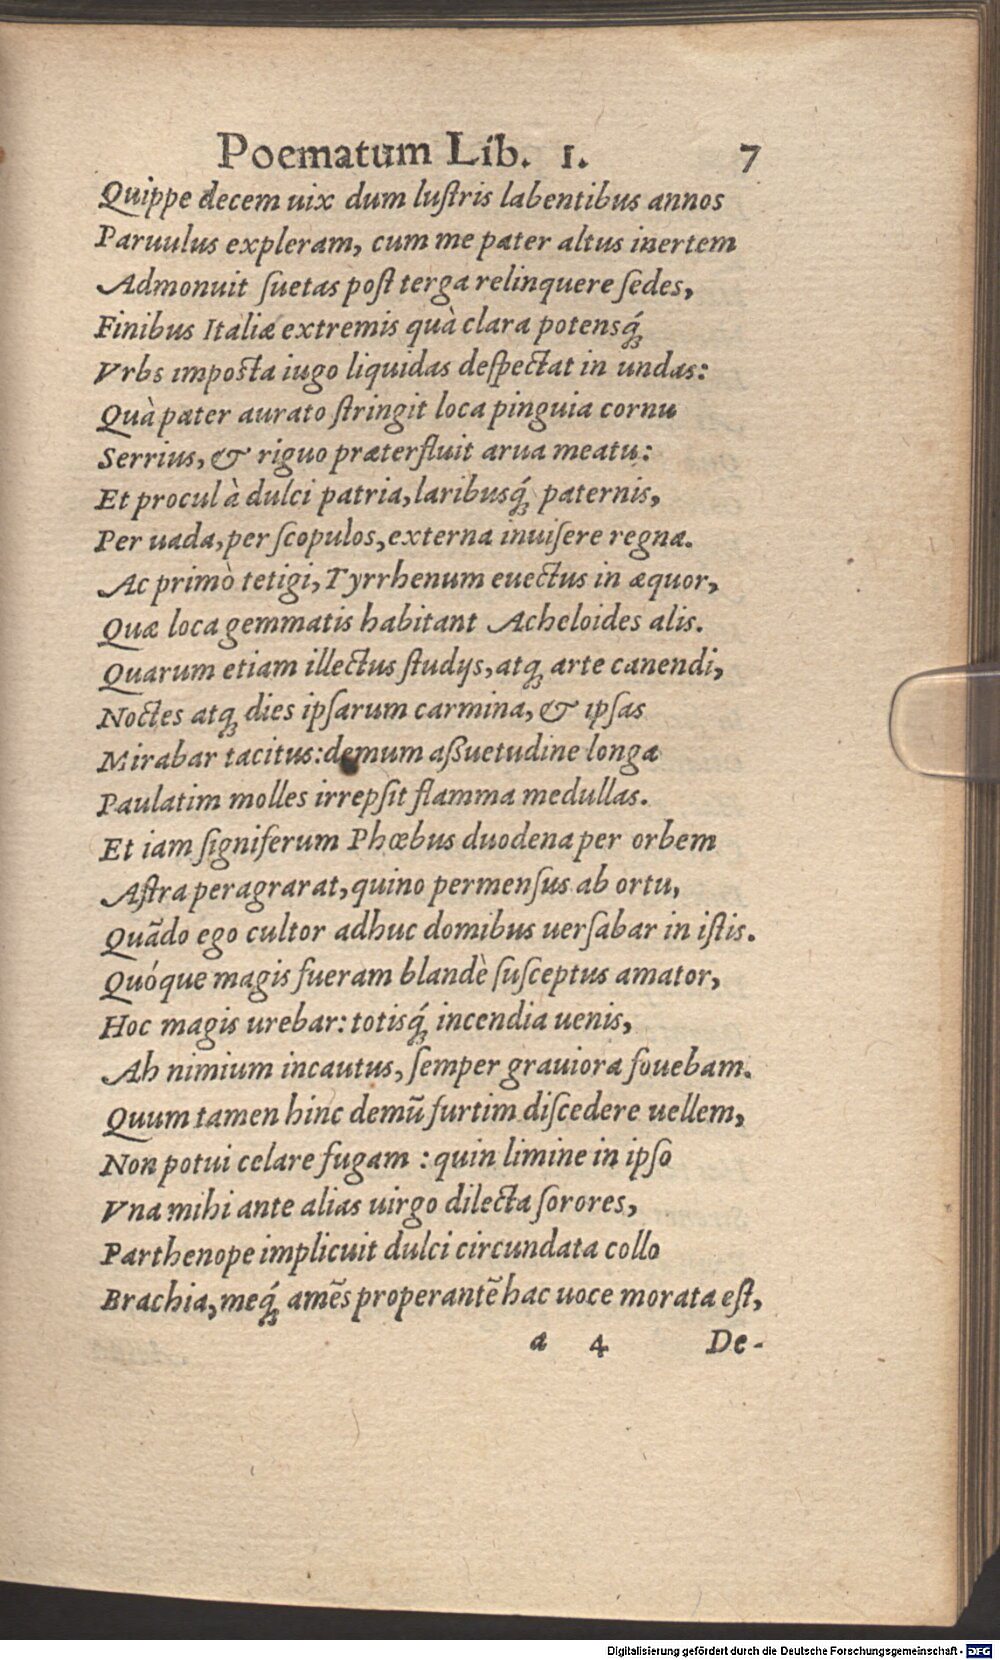 Poematum Lib. 1. 7
Quippe decem uix dum luſtris labentibus annos
Paruulus expleram, cum me pater altus inertem
Admonuit ſuetas poſt terga relinquere ſedes,
Finibus Italiæ extremis quà clara potensq́;
Vrbs imposta iugo liquidas deſpectat in undas:
Quà pater aurato ſtringit loca pinguia cornu
Serrius, & riguo præterfluit arua meatu:
Et procul à dulci patria, laribusq́; paternis,
Per uada, per ſcopulos, externa inuiſere regna.
Ac primò tetigi, Tyrrhenum euectus in æquor,
Quæ loca gemmatis habitant Acheloides alis.
Quarum etiam illectus ſtudijs, atq; arte canendi,
Noctes atq; dies ipſarum carmina, & ipſas
Mirabar tacitus: demum aßuetudine longa
Paulatim molles irrepſit flamma medullas.
Et iam ſigniferum Phœbus duodena per orbem
Aſtra peragrarat, quino permenſus ab ortu,
Quãdo ego cultor adhuc domibus uerſabar in iſtis.
Quóque magis fueram blandè ſuſceptus amator,
Hoc magis urebar: totisq́; incendia uenis,
Ah nimium incautus, ſemper grauiora fouebam.
Quum tamen hinc demũ furtim diſcedere uellem,
Non potui celare fugam : quin limine in ipſo
Vna mihi ante alias uirgo dilecta ſorores,
Parthenope implicuit dulci circundata collo
Brachia, meq́; amẽs properantẽ hac uoce morata eſt,
a 4 De-
Digitalisierung gefördert durch die Deutsche Forschungsgemeinschaft - DFG